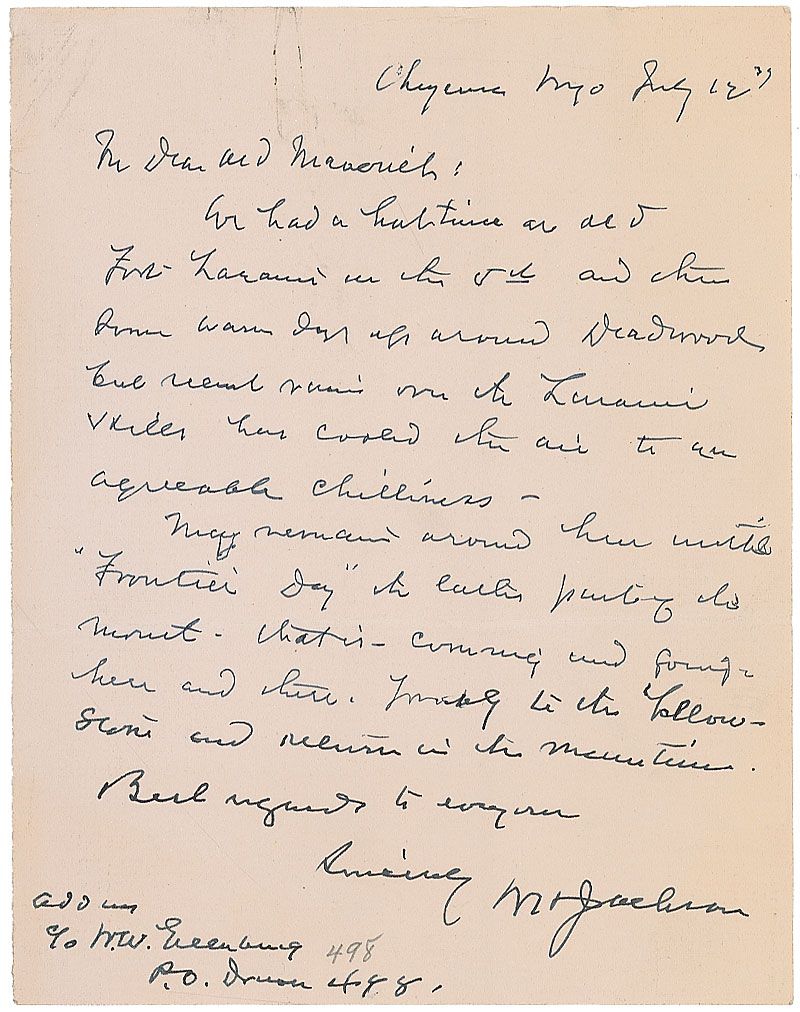 Cheyenne Wyo July 12 39
My Dear old Maverick:
We had a hot time at old
Fort Laramie on the 5th and then
some warm days up around Deadwood
but recent rains over the Laramie
Hills has cooled the air to an
agreeable chilliness -
May remain around here until
"Frontier Day" the latter part of the
month - that is - coming and going -
here and there. to the Yellow-
stone and return in the meantime.
Best regards to everyone
Sincerely WH Jackson
address
c/o W.W.
498
P.O. Drawer 498.